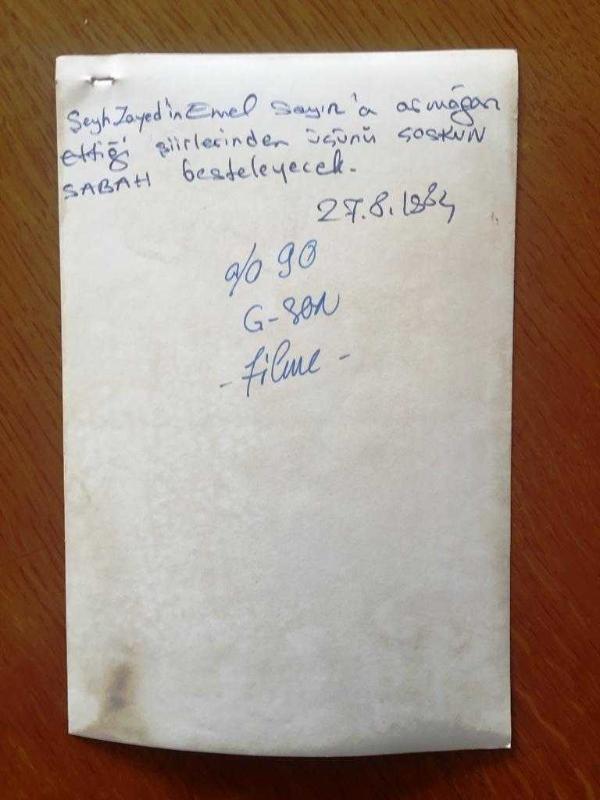 Şeyh Zayed'in Emel Sayın'a armağan
ettiği şiirlerinden üçünü COŞKUN
SABAH besteleyecek.
27.8.1984
% 90
G-SON
- Filme -